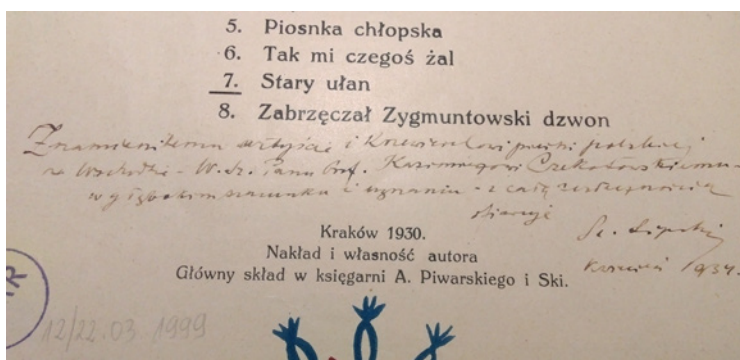 5. Piosnka chłopska
6. Tak mi czegoś żal
7. Stary ułan
8. Zabrzęczał Zygmuntowski dzwon
Znamienitemu artyście i Krzewicielowi pieśni polskiej
na Wschodzie - W. Sz. Panu Prof. Kazimierzowi Czekotowskiemu -
w głębokim szacunku i uznaniu - z całą serdecznością
ofiaruje
St. Lipski
Kraków 1934.
Kraków 1930.
Nakład i własność autora
Główny skład w księgarni A. Piwarskiego i Ski.
12/22.03.1999